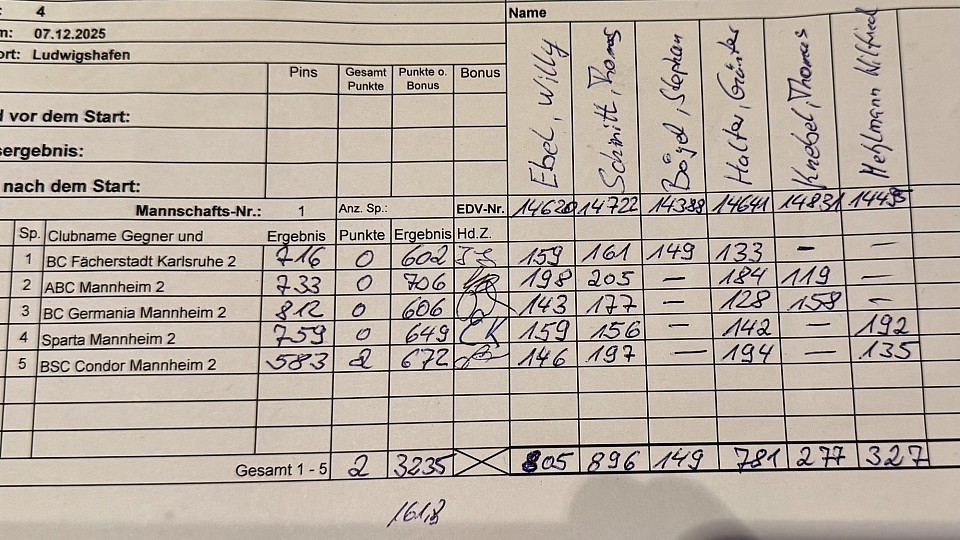 : 4 Name
n: 07.12.2025
ort: Ludwigshafen
Pins Gesamt Punkte Punkte o. Bonus Bonus
Ebel, Willy Schmitt, Thomas Bögel, Stephan Halter, Günter Knebel, Thomas Wilfried
d vor dem Start:
sergebnis:
nach dem Start:
Mannschafts-Nr.: 1 Anz. Sp.: EDV-Nr. 14620 14722 14388 14641 14831 14495
Sp. Clubname Gegner und Ergebnis Punkte Ergebnis Hd.Z.
1 BC Fächerstadt Karlsruhe 2 716 0 602 159 161 149 133 – –
2 ABC Mannheim 2 733 0 706 198 205 – 184 119 –
3 BC Germania Mannheim 2 812 0 606 143 177 – 128 158 –
4 Sparta Mannheim 2 759 0 649 CK 159 156 – 142 – 192
5 BSC Condor Mannheim 2 583 2 672 146 197 – 194 – 135
Gesamt 1 - 5 2 3235 805 896 149 781 277 327
161,8